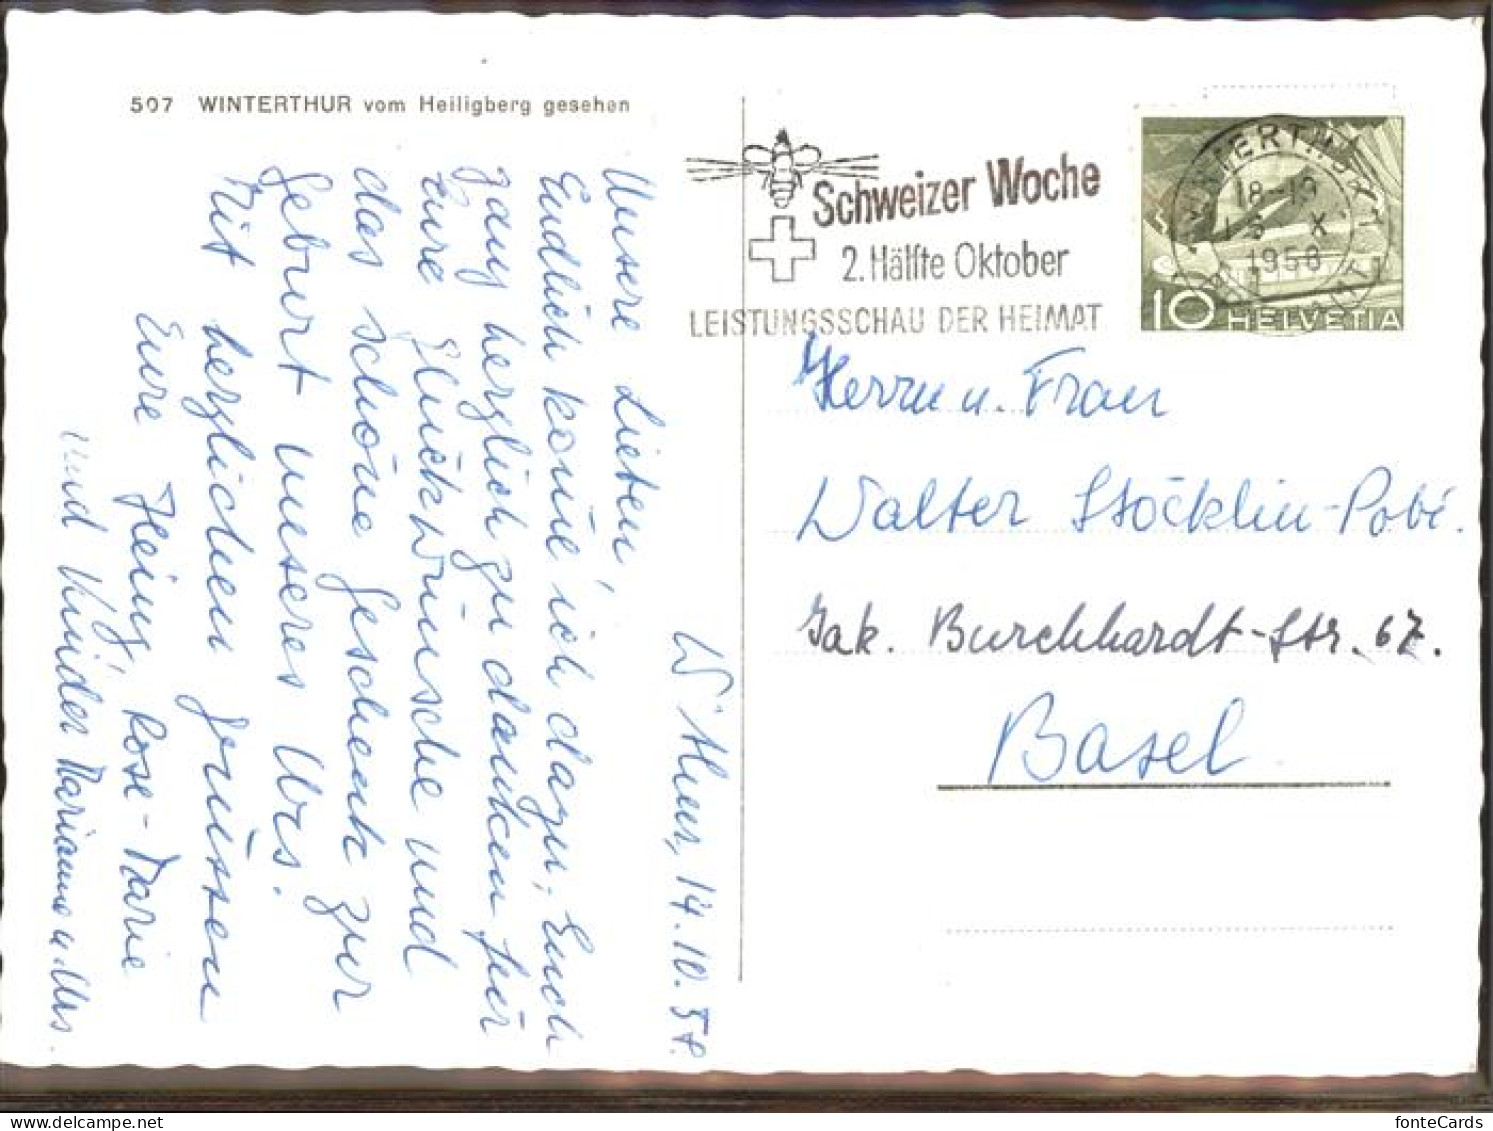 507 WINTERTHUR vom Heiligberg gesehen
Schweizer Woche
2. Hälfte Oktober
LEISTUNGSSCHAU DER HEIMAT
WINTERTHUR 1
18-19
X
1958
10 HELVETIA
W'thur, 14. 10. 58.
Unsere Lieben,
Endlich kom̄e ich dazu, Euch
ganz herzlich zu danken für
Eure Glückwünsche und
das schöne Geschenk zur
Geburt unseres Urs.
Mit herzlichen Grüssen
Eure Heinz, Rose-Marie
und Kinder Marianne u. Urs.
Herrn u. Frau
Walter Stöcklin-Pobé.
Jak. Burckhardt-Str. 67.
Basel
fonteCards